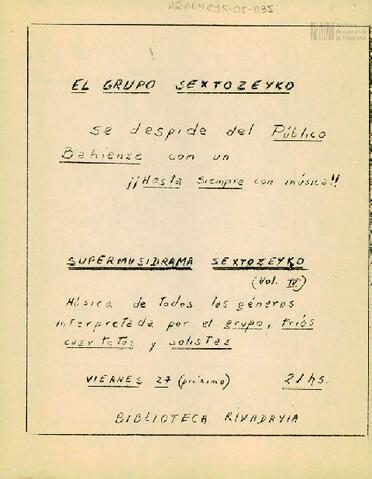 EL GRUPO SEXTOZEYKO
se despide del Público
Bahiense con un
¡¡Hasta siempre con música!!
SUPERMUSIDRAMA SEXTOZEYKO
(Vol. IV)
Música de todos los géneros
interpretada por el grupo, tríos
cuartetos y solistas
VIERNES 27 (próximo) 21 hs.
BIBLIOTECA RIVADAVIA